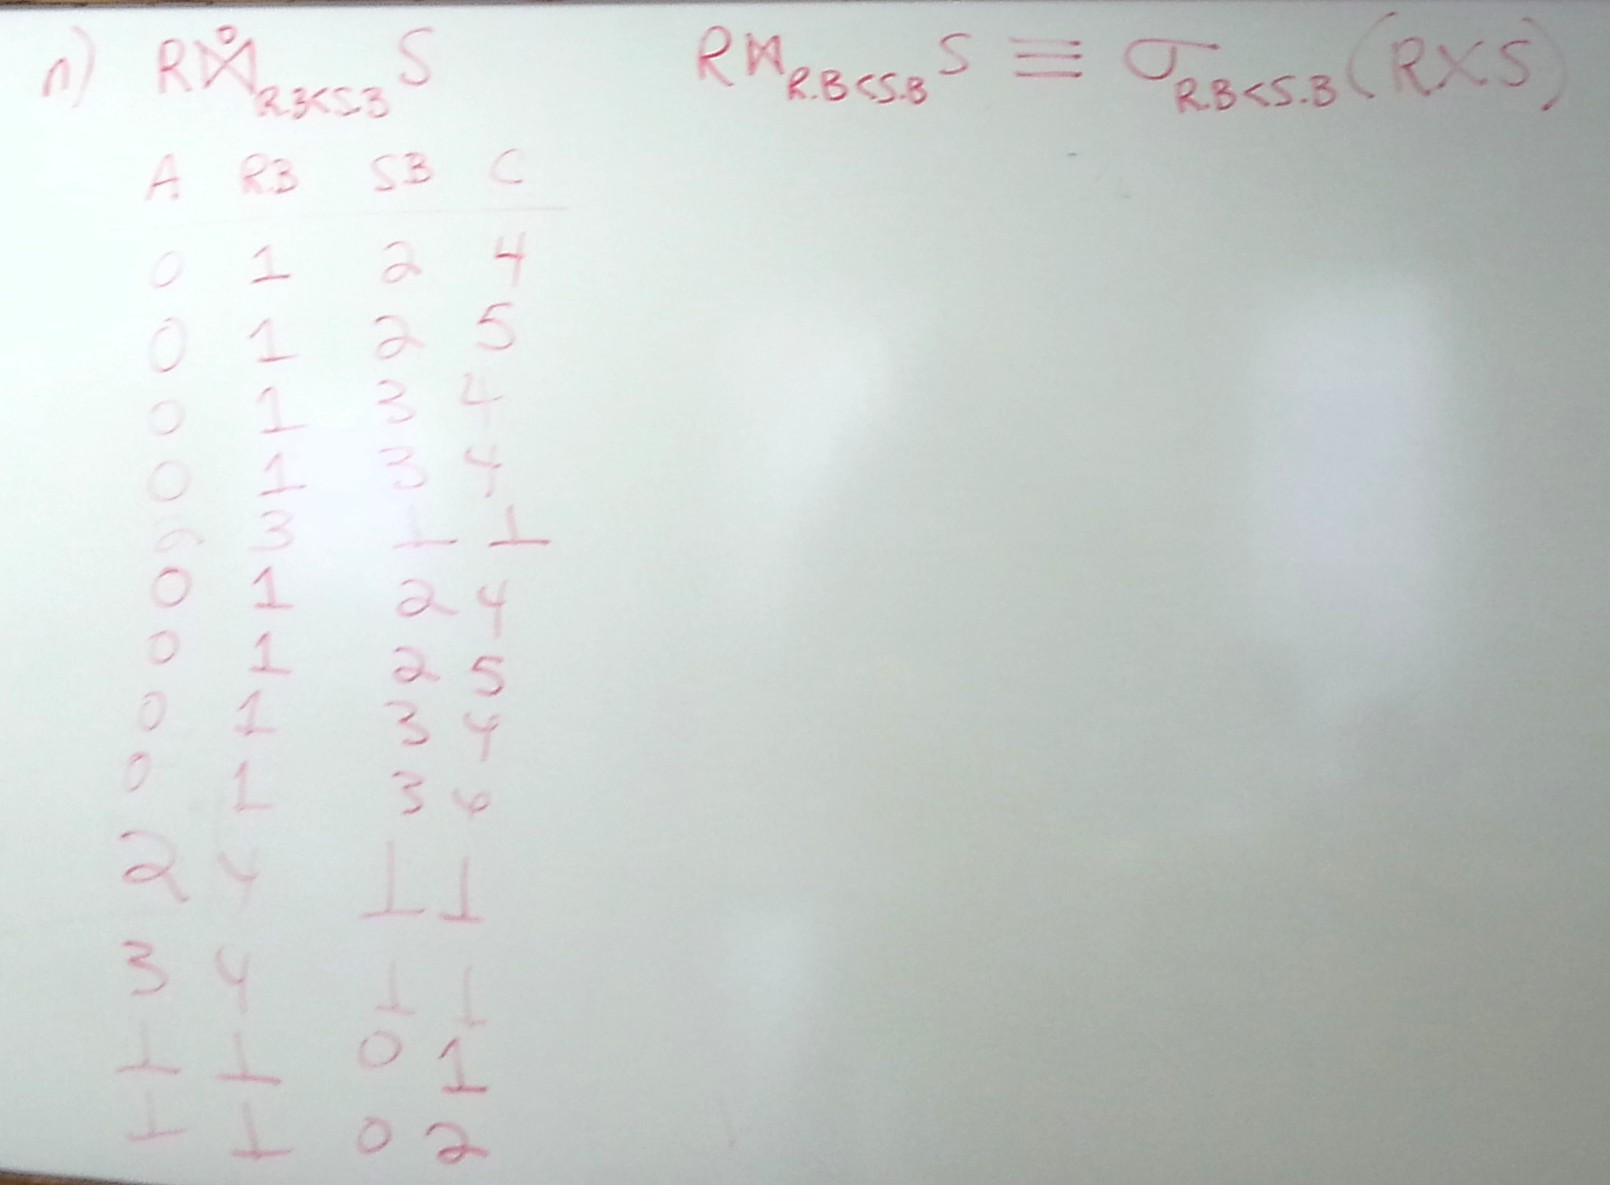 n) R⟗° R.B<S.B S    R⋈ R.B<S.B S ≡ σ R.B<S.B (R×S)
A RB SB C
0 1 2 4
0 1 2 5
0 1 3 4
0 1 3 4
3 ⊥ ⊥
0 1 2 4
0 1 2 5
0 1 3 4
0 1 3 4
2 4 ⊥ ⊥
3 4 ⊥ ⊥
⊥ ⊥ 0 1
⊥ ⊥ 0 2